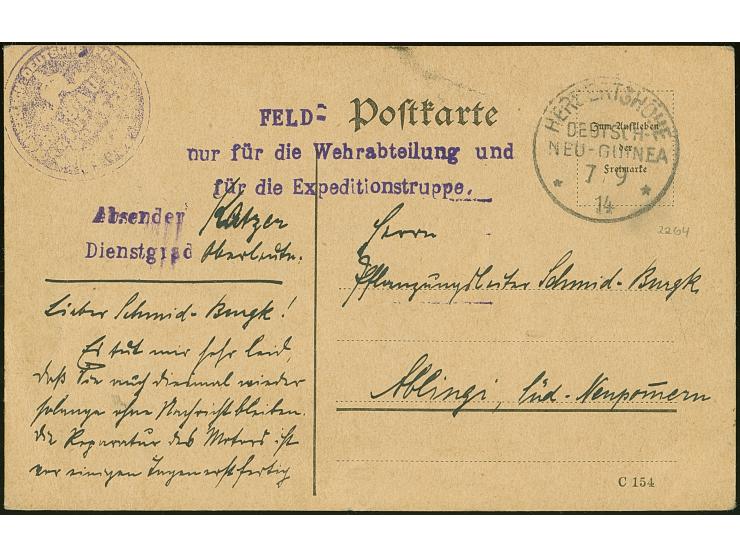 FELD= Postkarte
nur für die Wehrabteilung und
für die Expeditionstruppe.
HERBERTSHÖHE
DEUTSCH-
NEU-GUINEA
7/9
* *
14
Zum Aufkleben
der
Freimarke
2264
Absender Katzer
Dienstgrad Oberleutn.
Herrn
Pflanzungsleiter Schmid-Burgk,
Ablingi, Süd-Neupom̄ern
Lieber Schmid-Burgk!
Es tut mir sehr leid,
daß Sie auch diesmal wieder
solange ohne Nachricht bleiben.
Die Reparatur des Motors ist
vor einigen Tagen erst fertig
C 154